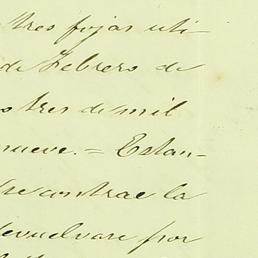 tres fojas uti-
de Febrero de
tres de mil
nueve. = Estan-
se contrae la
devuelvase por